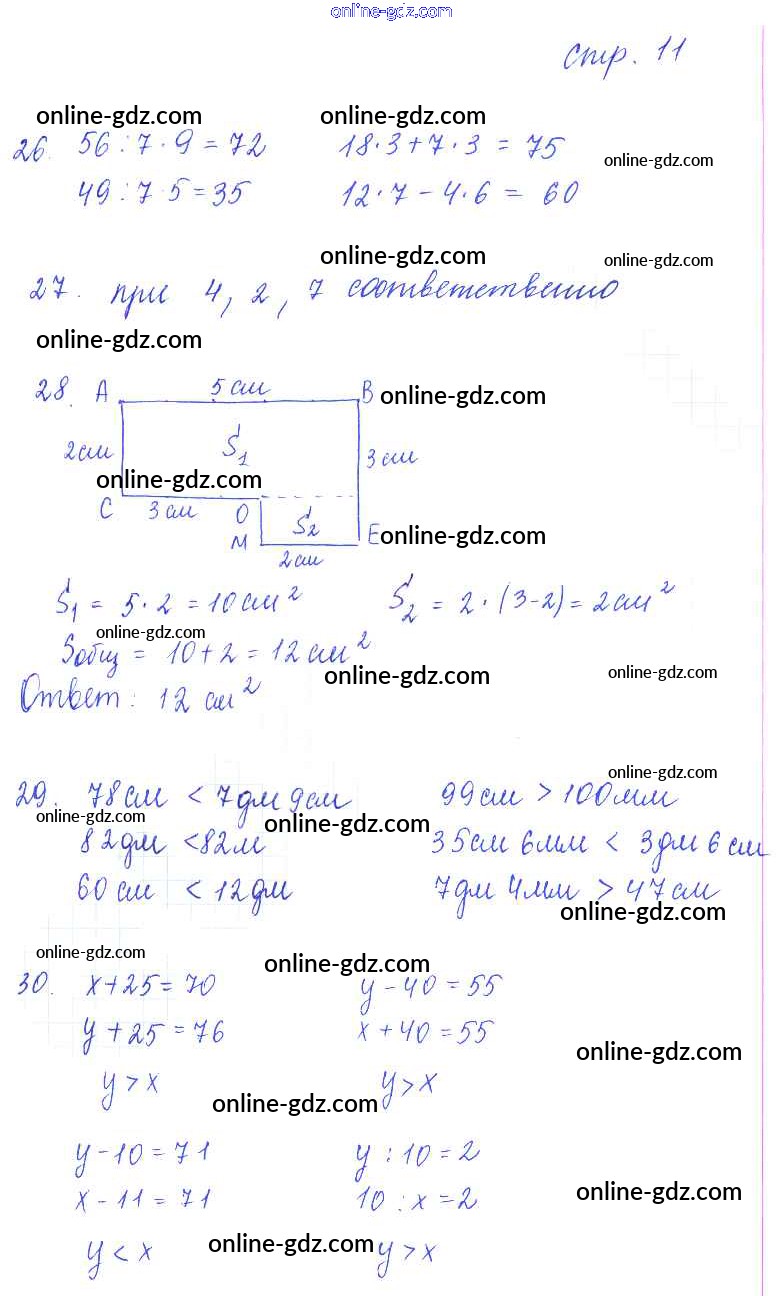 online-gdz.com
стр. 11
online-gdz.com online-gdz.com
26. 56 : 7 · 9 = 72 18·3 + 7·3 = 75 online-gdz.com
49 : 7 · 5 = 35 12·7 – 4·6 = 60
online-gdz.com online-gdz.com
27. при 4, 2, 7 соответственно
online-gdz.com
28. A 5 см B online-gdz.com
2 см S1 3 см
online-gdz.com
C 3 см O S2 E online-gdz.com
M 2 см
S1 = 5·2 = 10 см² S2 = 2·(3-2) = 2 см²
online-gdz.com
Sобщ = 10 + 2 = 12 см²
online-gdz.com online-gdz.com
Ответ: 12 см²
online-gdz.com
29. 78 см < 7 дм 9 см 99 см > 100 мм
online-gdz.com online-gdz.com
82 дм < 82 м 35 см 6 мм < 3 дм 6 см
60 см < 12 дм 7 дм 4 мм > 47 см
online-gdz.com
online-gdz.com online-gdz.com
30. x + 25 = 70 y – 40 = 55
y + 25 = 76 x + 40 = 55
online-gdz.com
y > x y > x
online-gdz.com
y – 10 = 71 y : 10 = 2
x – 11 = 71 10 : x = 2
online-gdz.com
y < x online-gdz.com y > x